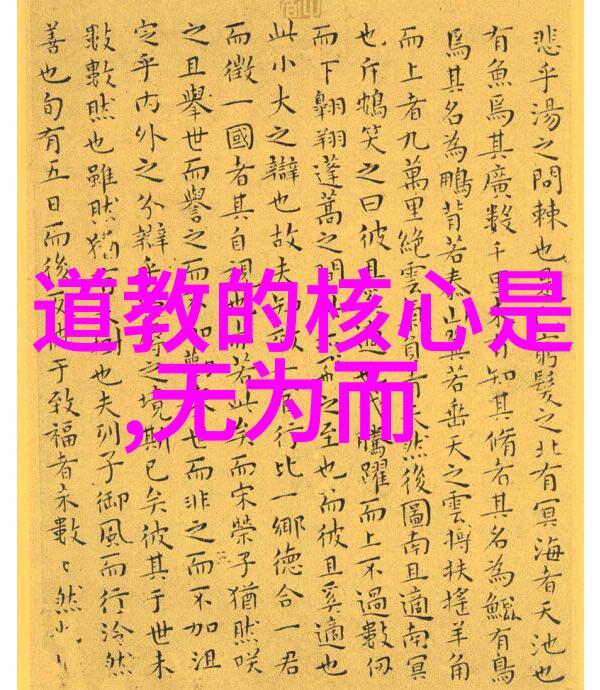 道教的核心是
,无为而
悲乎湯之問棘也 髮之北有冥海者天池也
有魚焉其廣數千里 有知其脩者其名為鯤有鳥
焉其名為鵬背若泰山 若垂天之雲摶扶搖羊角
而上者九萬里絕雲 負青 然後圖南且適南冥
也斥鴳笑之曰彼且 騰躍而上不過數仞
而下翱翔蓬蒿之間 之至也而彼且奚適也
此小大之辯也故夫 行比一鄉德合一君
而徵一國者其自視也 若此矣而宋榮子猶然咲
之且舉世而譽之而不加 世而非之而不加沮
定乎內外之分辯乎 之境斯已矣彼其于世未
數數然也雖然猶 也夫列子御風而行泠然
善也旬有五日而後反彼于致福者未數〻然也